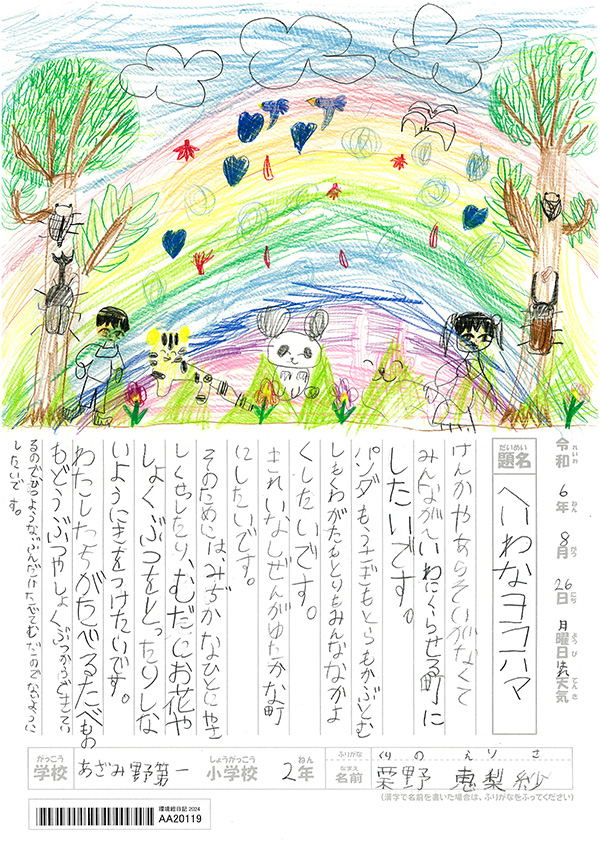 令和 れいわ 6年 ねん 8月 がつ 26日 にち 月曜日 ようび はれ 天気 てんき
だいめい 題名 へいわなヨコハマ
けんかやあらそいがなくて
みんながへいわにくらせる町に
したいです。
パンダもうさぎもとらもかぶとむ
しもくわがたもとりもみんななかよ
くしたいです。
きれいなしぜんがゆたかな町
にしたいです。
そのためには、みぢかなひとにやさ
しくせっしたり、むだにお花や
しょくぶつをとったりしな
いようにきをつけたいです。
わたしたちがたべるたべもの
もどうぶつやしょくぶつからできてい
るのでひつようなぶんだけたべてむだにのこさないように
したいです。
がっこう 学校 あざみ野第一 しょうがっこう 小学校 2年 ねん ふりがな くりの えりさ なまえ 名前 栗野 恵梨紗
(漢字で名前を書いた場合は、ふりがなをふってください)
環境絵日記 2024
AA20119